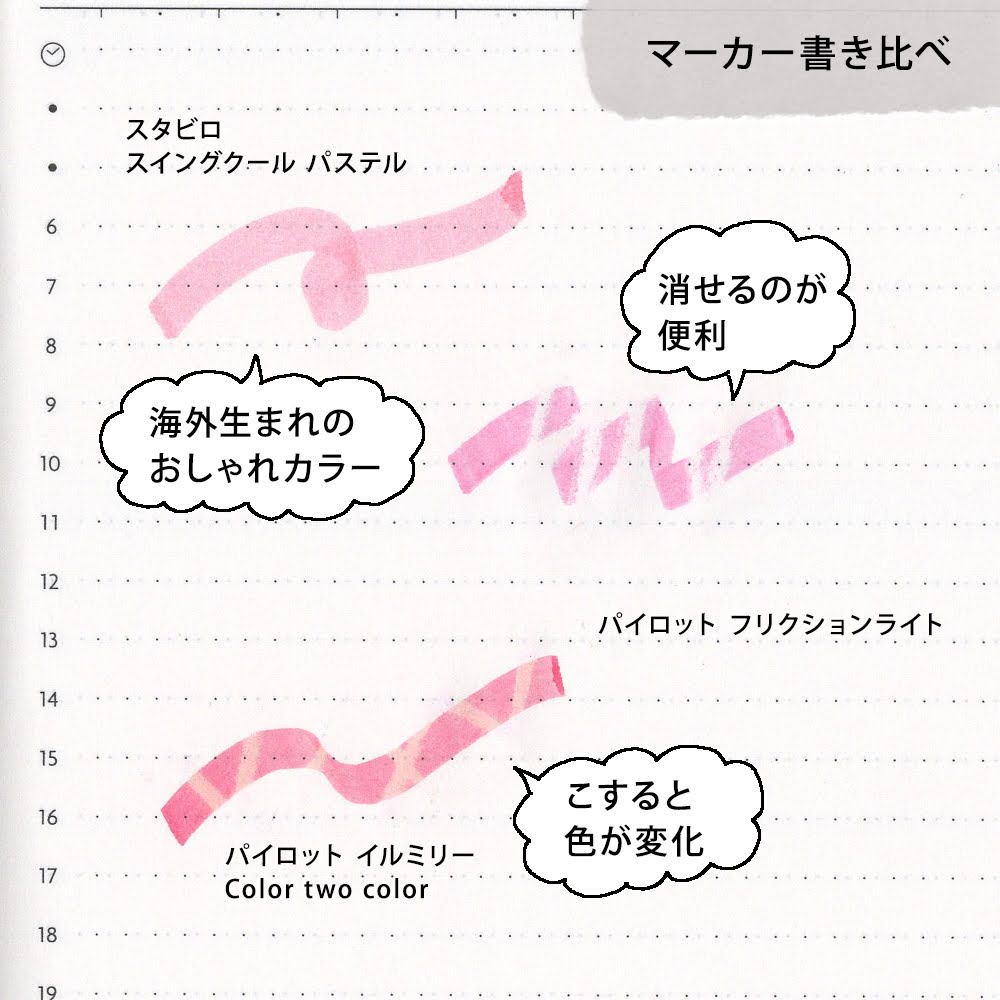 マーカー書き比べ
スタビロ
スイングクール パステル
6
7
8
9
10
11
12
13
14
15
16
17
18
19
消せるのが
便利
海外生まれの
おしゃれカラー
パイロット フリクションライト
こすると
色が変化
パイロット イルミリー
Color two color